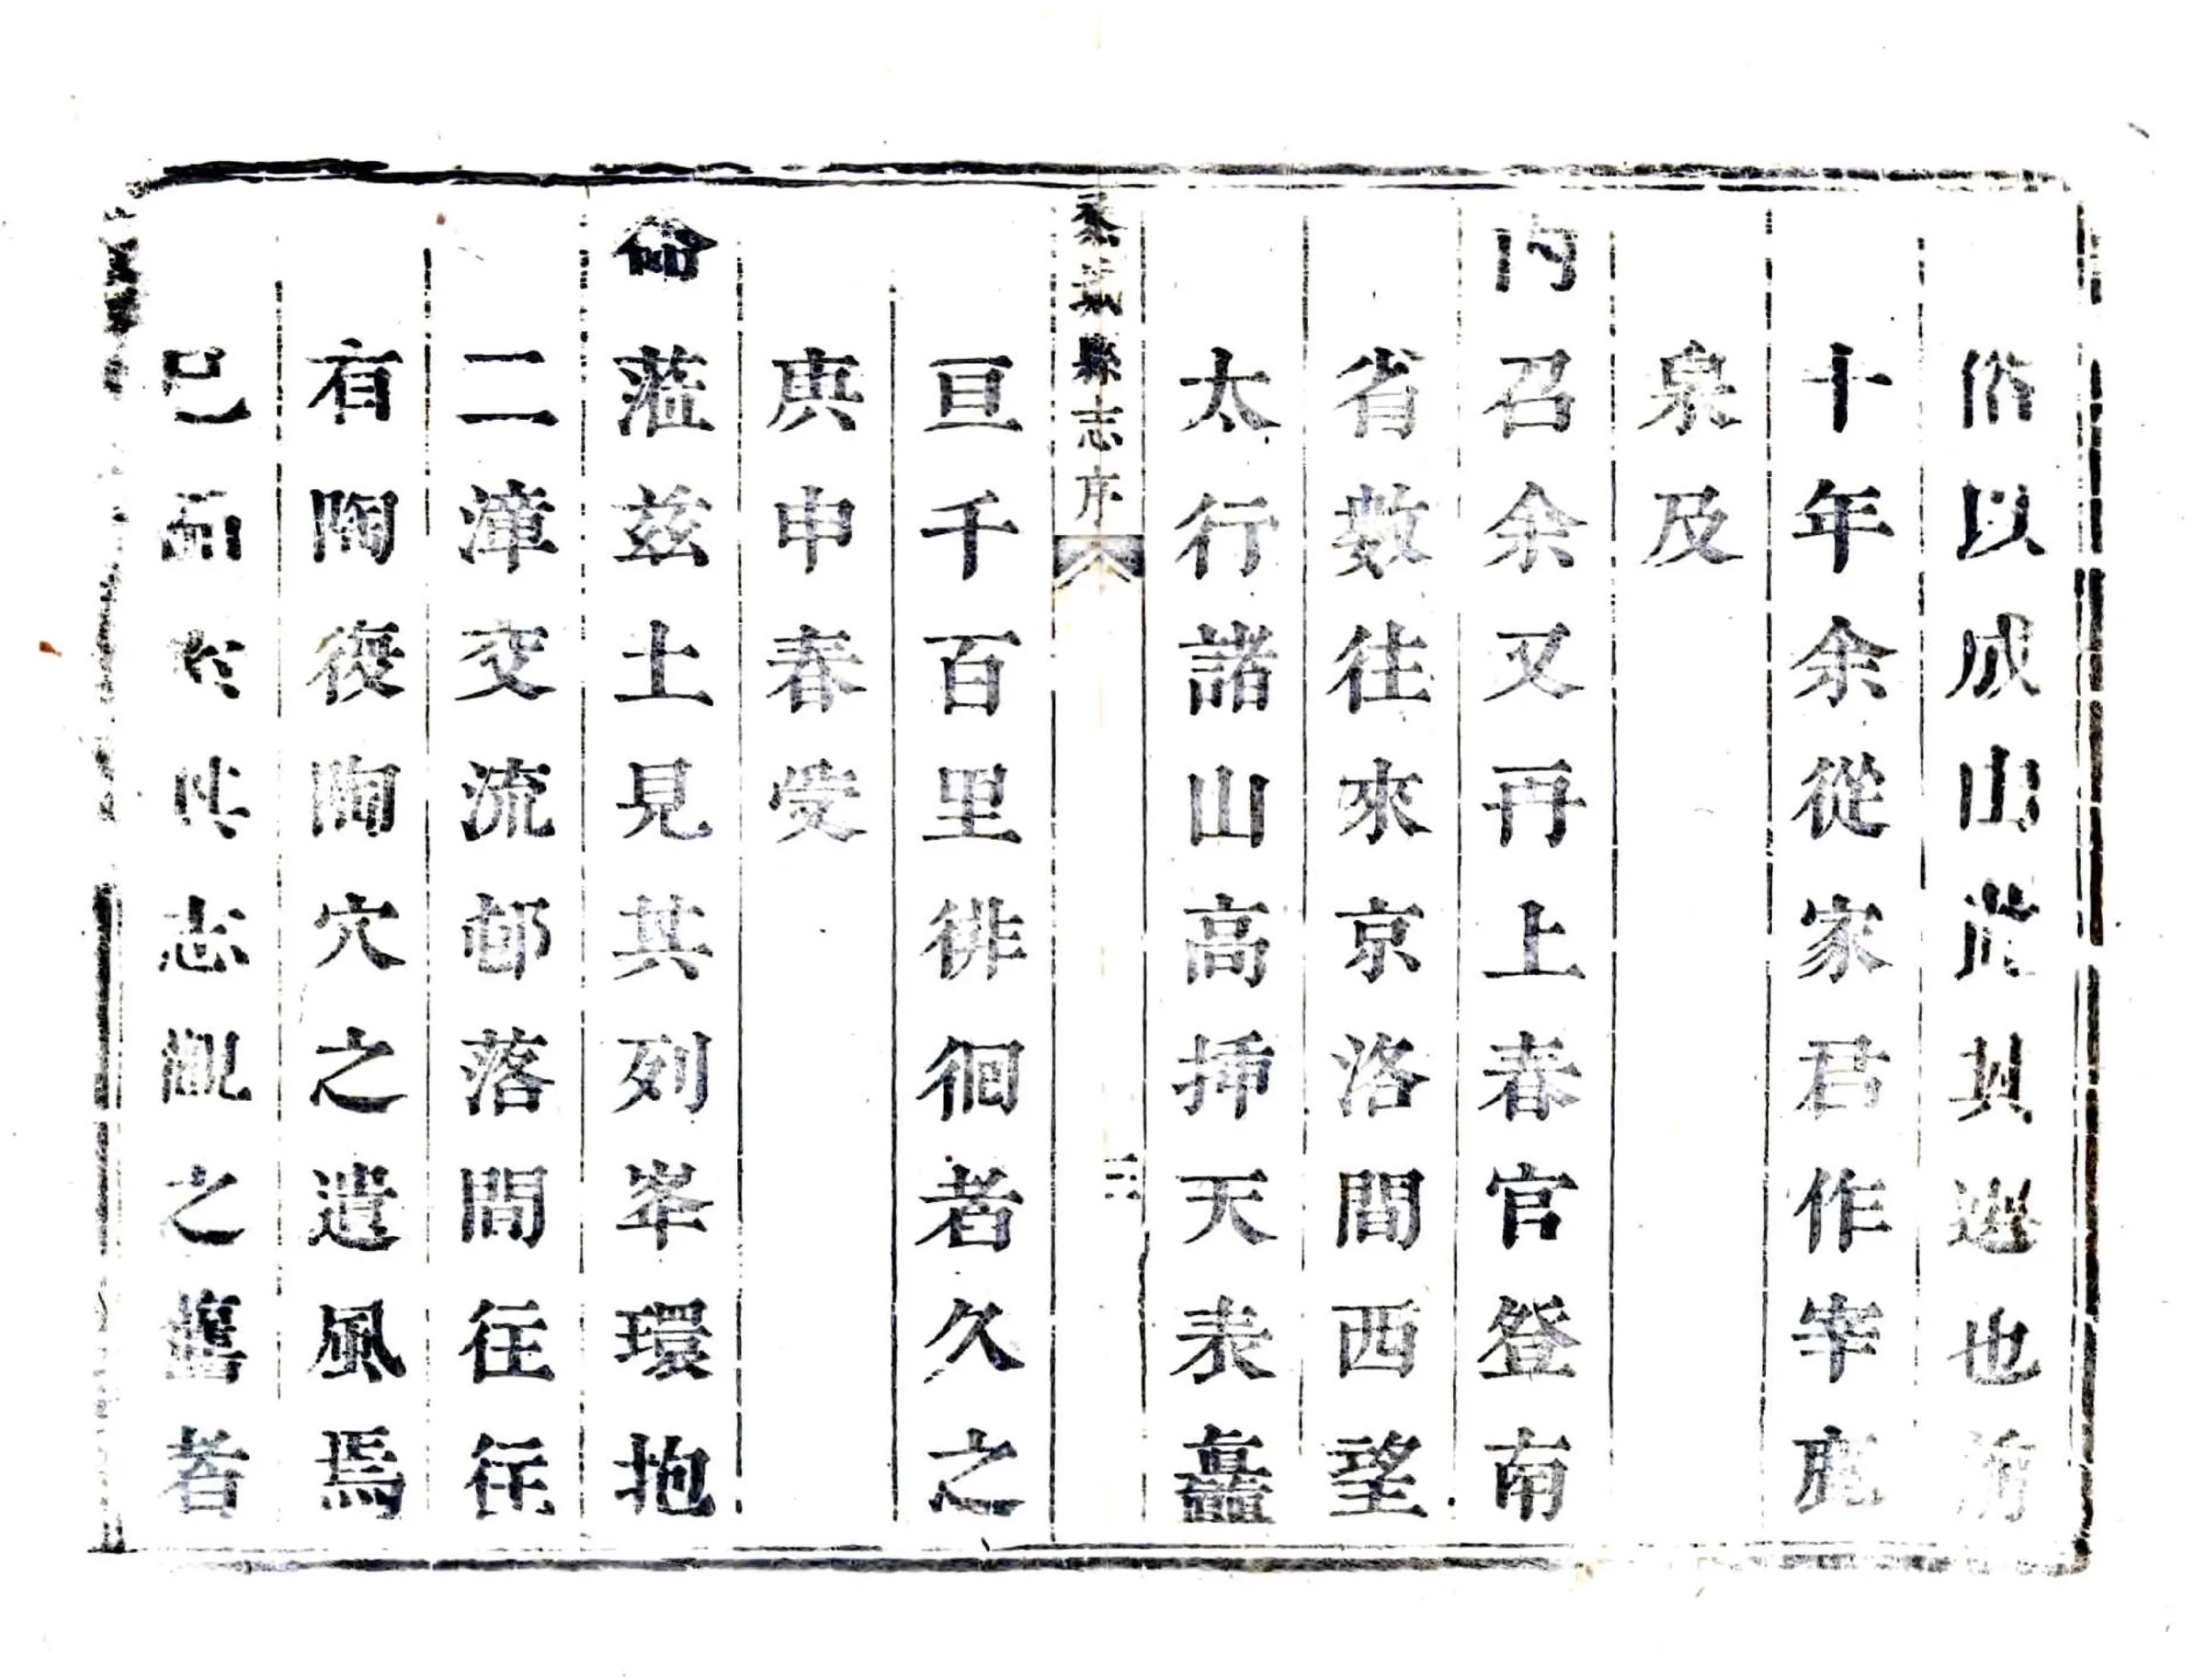 俗以成其也
十年余從家君作宰鹿
泉及
内召余又再上春官登南
省數往來京洛間西望
太行諸山高挿天表矗
縣志序
亘千百里徘徊者久之
庚申春受
命蒞兹土見其列峯環抱
二漳交流邨落間往往
有陶復陶穴之遺風焉
已而於其志觀之舊者